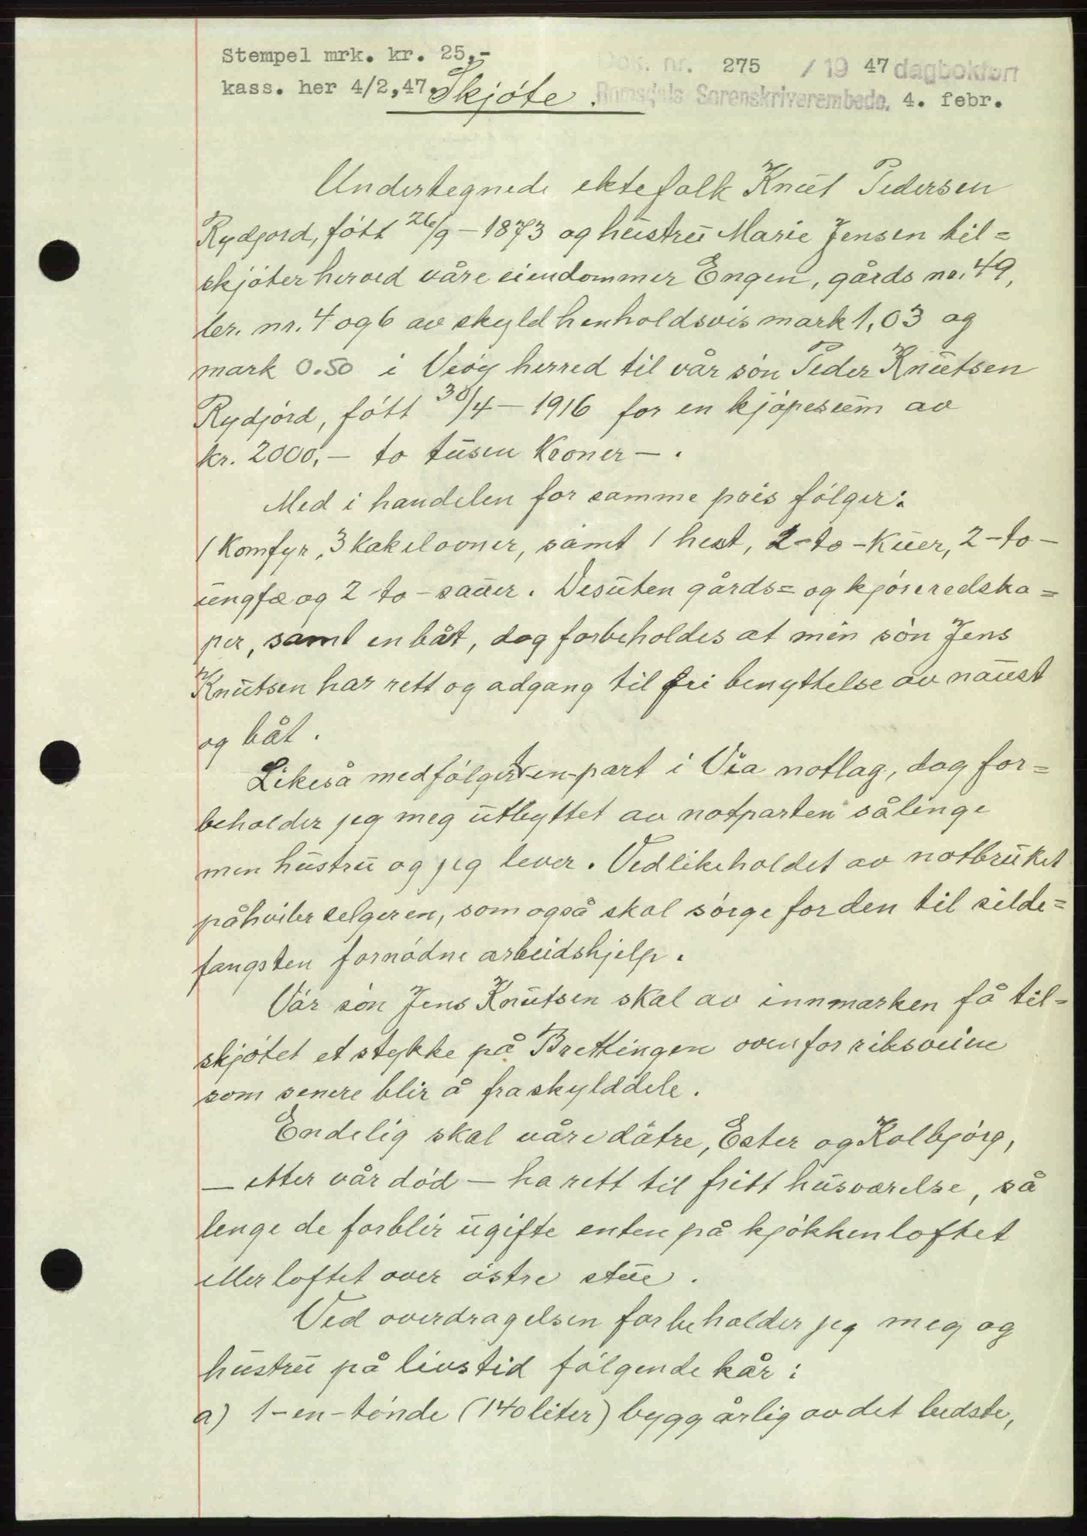 Stempel mrk. kr. 25,-
kass. her 4/2,47.
Dok. nr. 275 / 19 47 dagbokført
Romsdals Sorenskriverembede, 4. febr.
Skjøte.
Undertegnede ektefolk Knut Pedersen
Rydjord, fött 26/9 – 1873 og hustru Marie Jensen til=
skjöter herved våre eiendommer Engen, gårds nr. 49,
br. nr. 4 og 6 av skyld henholdsvis mark 1,03 og
mark 0.50 i Veöy herred til vår sön Peder Knutsen
Rydjord, fött 30/4 – 1916 for en kjöpesum av
kr. 2000,– to tusen Kroner – .
Med i handelen for samme pris fölger:
1 Komfyr, 3 kakelovner, samt 1 hest, 2-to-Kuer, 2-to-
ungfæ og 2 to-sauer. Desuten gårds= og kjöreredska=
per, samt en båt, dog forbeholdes at min sön Jens
Knutsen har rett og adgang til fri benyttelse av naust
og båt.
Likeså medfölger 1-en-part i Via notlag, dog for=
beholder jeg meg utbyttet av notparten sålenge
men hustru og jeg lever. Vedlikeholdet av notbruket
påhviler selgeren, som også skal sörge for den til silde=
fangsten fornödne arbeidshjelp.
Vår sön Jens Knutsen skal av innmarken få til=
skjötet et stykke på Brettingen ovenfor riksveiene
som senere blir å fraskylddele.
Endelig skal våre dötre, Ester og Kolbjörg,
– etter vår död – ha rett til fritt husværelse, så
lenge de forblir ugifte enten på kjökkenloftet
eller loftet over östre stue.
Ved overdragelsen forbeholder jeg meg og
hustru på livstid fölgende kår:
a) 1-en-tönde (140 liter) bygg årlig av det bedste,